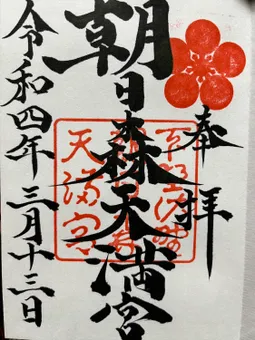 奉拝
朝日森天満宮
天満宮
令和四年三月十三日